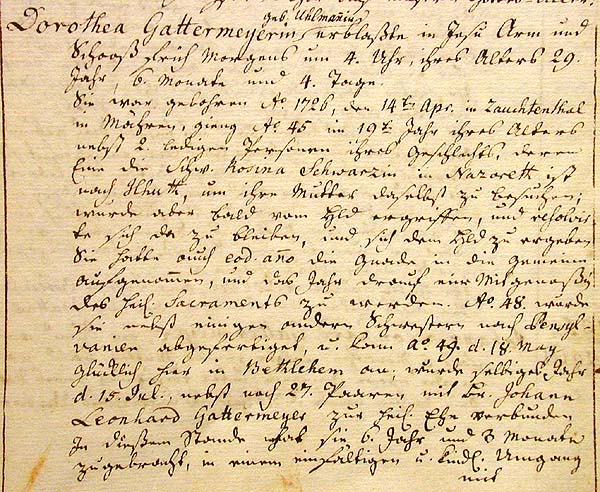 geb. Uhlmañin
Dorothea Gattermeyerin, erblaßte in Jesu Arm und
Schooß früh Morgens um 4. Uhr, ihres Alters 29.
Jahr, 6. Monate und 4. Tage.
Sie war gebohren Aº 1726, den 14ten Apr. in Zauchtenthal
in Mähren, gieng Aº 45 im 19ten Jahr ihres Alters
nebst 2 ledigen Personen ihres Geschlechts, deren
Eine die Schw. Rosina Schwarzin in Nazareth ist
nach Hhuth, um ihre Mutter daselbst zu besuchen;
wurde aber bald vom Hld ergriffen, und resolvir-
te sich da zu bleiben, und sich dem Hld zu ergeben
Sie hatte auch eod. año die Gnade in die Gemeine
aufgenom̄en, und das Jahr drauf eine Mitgenoßin
des heil. Sacraments zu werden. Aº. 48. wurde
sie nebst einigen andern Schwestern nach Pensyl-
vanien abgefertiget, u. kam aº. 49. d. 18 May
glücklich hier in Bethlehem an; wurde selbiges Jahr
d. 15. Jul., nebst noch 27. Paaren mit Br. Johann
Leonhard Gattermeyer zur heil. Ehe verbunden
In dießem Stande hat sie 6. Jahr und 3 Monate
zugebracht, in einem einfältigen u. kindl. Umgang
mit